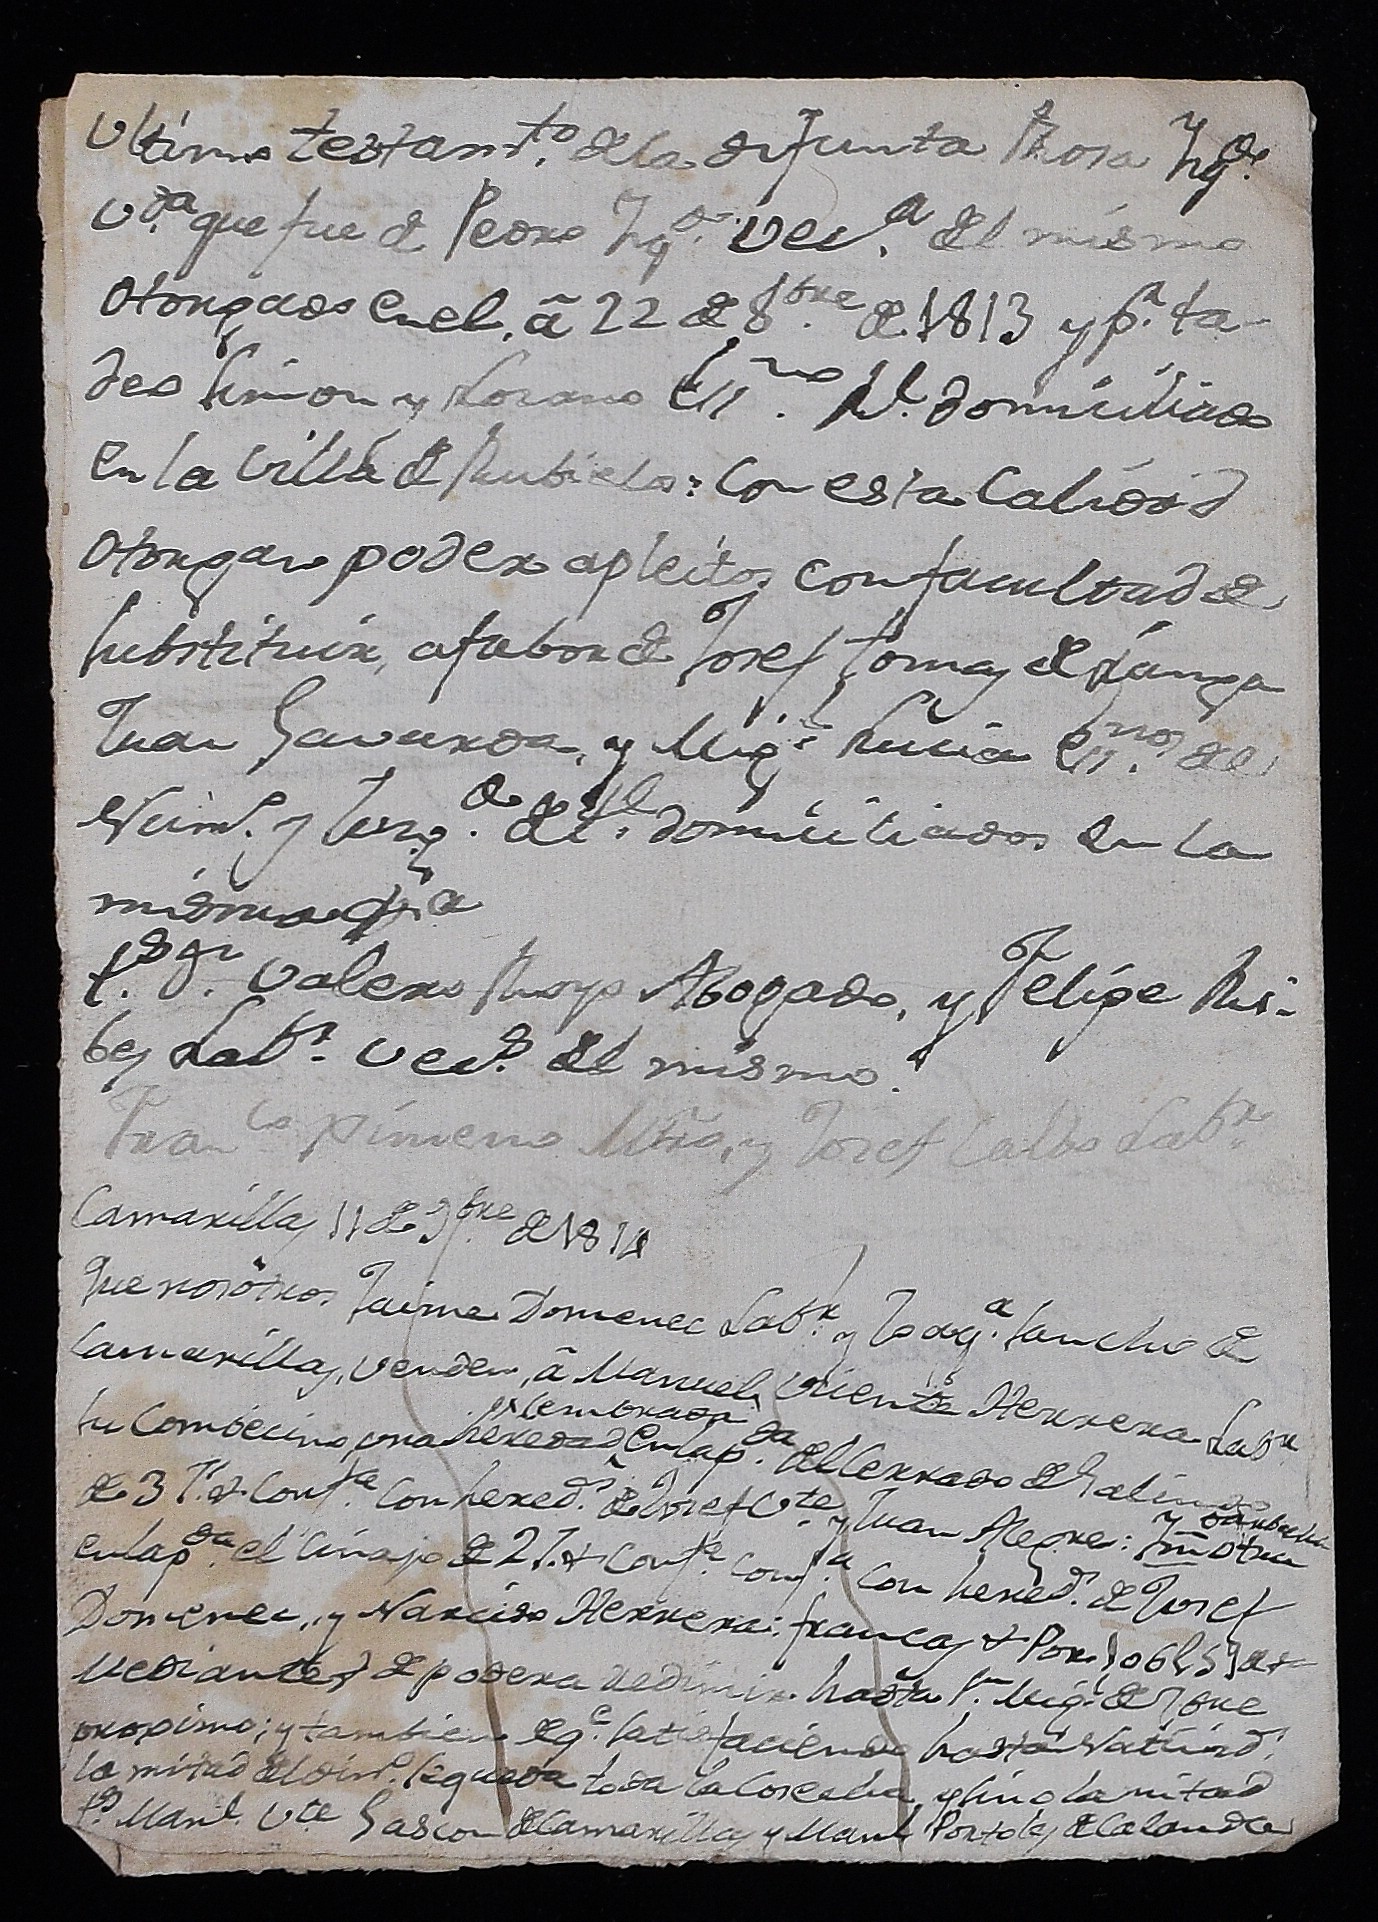 Ultimo testam.to de la difunta Rosa Yg.do
V.da que fue de Pedro Yg.do vec.a del mismo
otorgado en el, â 22 de 8.bre de 1813 y p.r ta-
deo Simon y Lozano Es.no R.l domiciliado
en la Villa de Rubielos: Con esta Calidad
otorgan poder apleitos con facultad de
substituir, a fabor de Josef tomas de Langa
Juan Gavarda, y Mig.l Lucia Es.nos del
Num.o y Juzg.do de T.l domiciliados en la
misma
t.s D.n Valero Royo Abogado, y Felipe Ri-
bes Lab.r vec.s del mismo.
Fran.co Ximeno Mtro, y Josef Calbo Lab.r
Camarillas 11 de 9.bre de 1814
Que nosotros Jaime Domenec Lab.r y Joaq.a Sancho de
Camarillas, venden, â Manuel Vicente Herrera Lab.r
su Combecino, una heredad sembrada en la p.da del Cerrado de Galindo
de 3 J.s & Conf.te Con hered.s de Josef V.te y Juan Alegre: y barbecho Ittm otra
en la p.da el Cinajo de 2 J. & Conf.te con hered.s de Josef
Domenec, y Narciso Herrera: francas & Por 106 L 5 &
Mediante de poder redimir hasta S.n Mig.l de 7bre
proximo; y tambien de q.e satisfaciendo hasta Natiud.d
la mitad del din.o le queda toda la Cosecha, y sino la mitad
t.s Man.l V.te Gascon de Camarillas y Man.l Portoles de Calanda